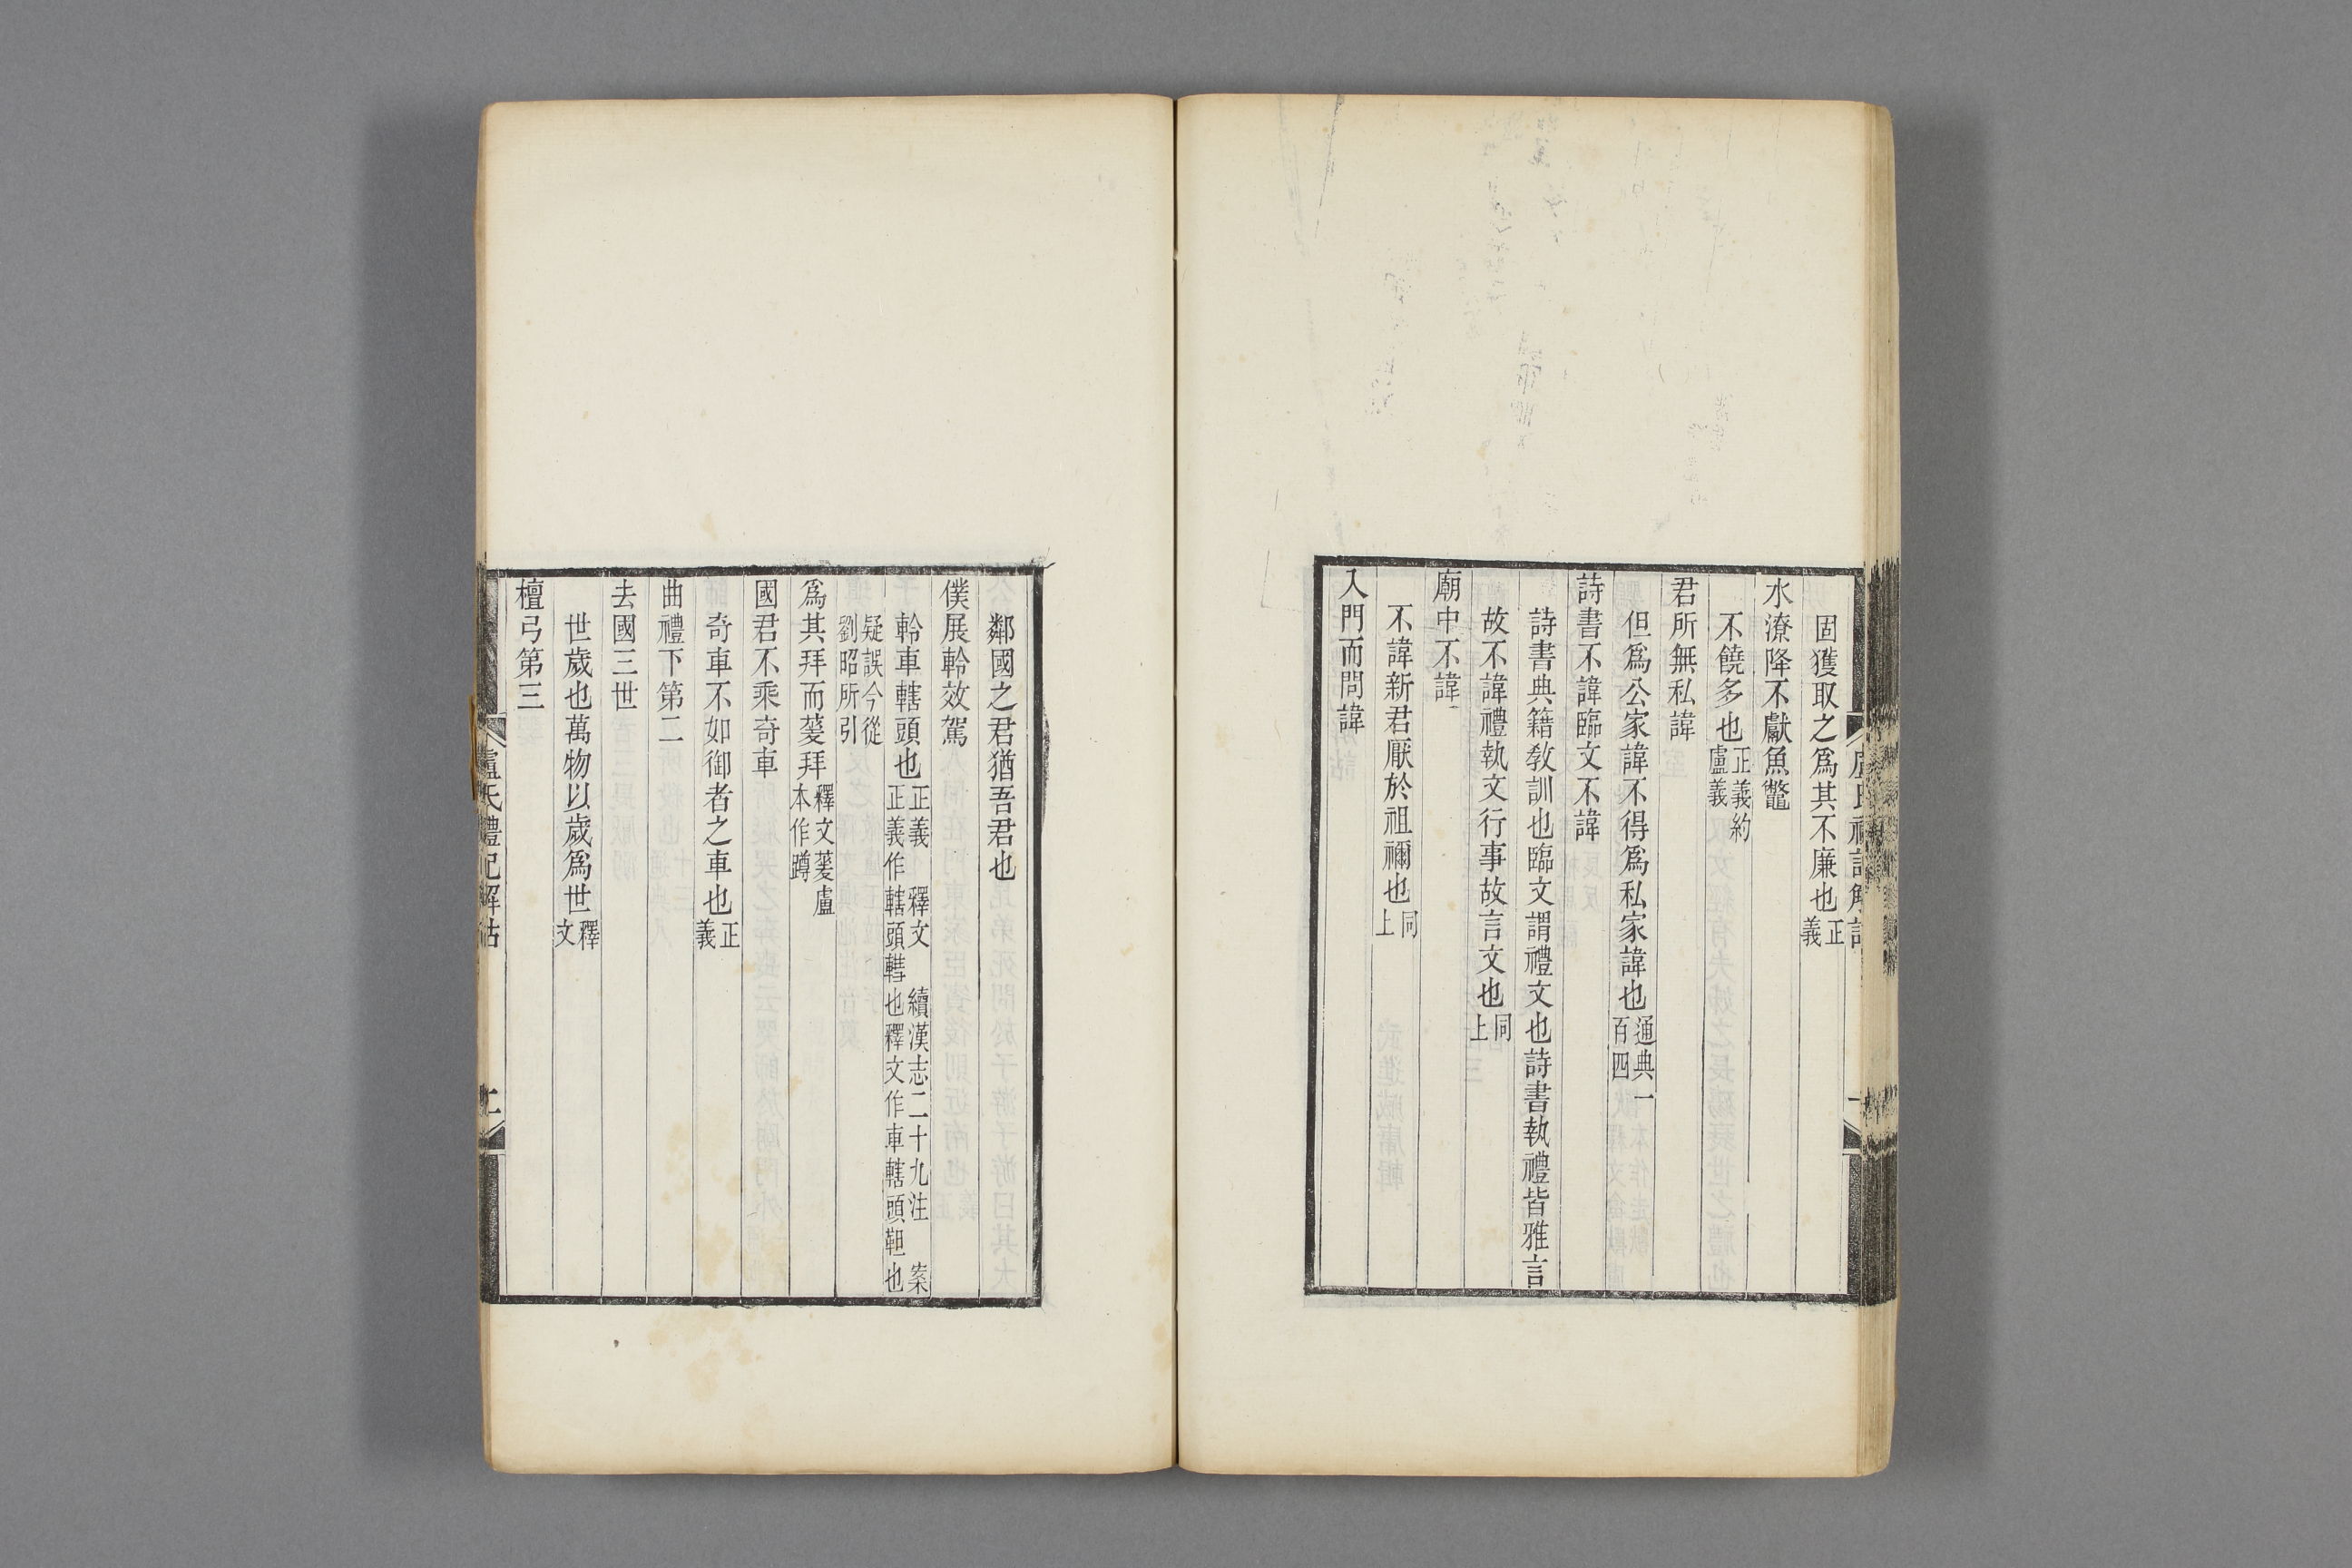 固獲取之爲其不廉也正義
水潦降不獻魚鼈
不饒多也正義約盧義
君所無私諱
但爲公家諱不得爲私家諱也通典一百四
詩書不諱臨文不諱
詩書典籍敎訓也臨文謂禮文也詩書執禮皆雅言
故不諱禮執文行事故言文也同上
廟中不諱
不諱新君厭於祖禰也同上
入門而問諱
鄰國之君猶吾君也
僕展軨效駕
軨車轄頭也正義 釋文 續漢志二十九注 案正義作轄頭轊也釋文作車轄頭靼也
疑誤今從劉昭所引
爲其拜而蓌拜釋文蓌盧本作蹲
國君不乘奇車
奇車不如御者之車也正義
曲禮下第二
去國三世
世歲也萬物以歲爲世釋文
檀弓第三
盧氏禮記解詁